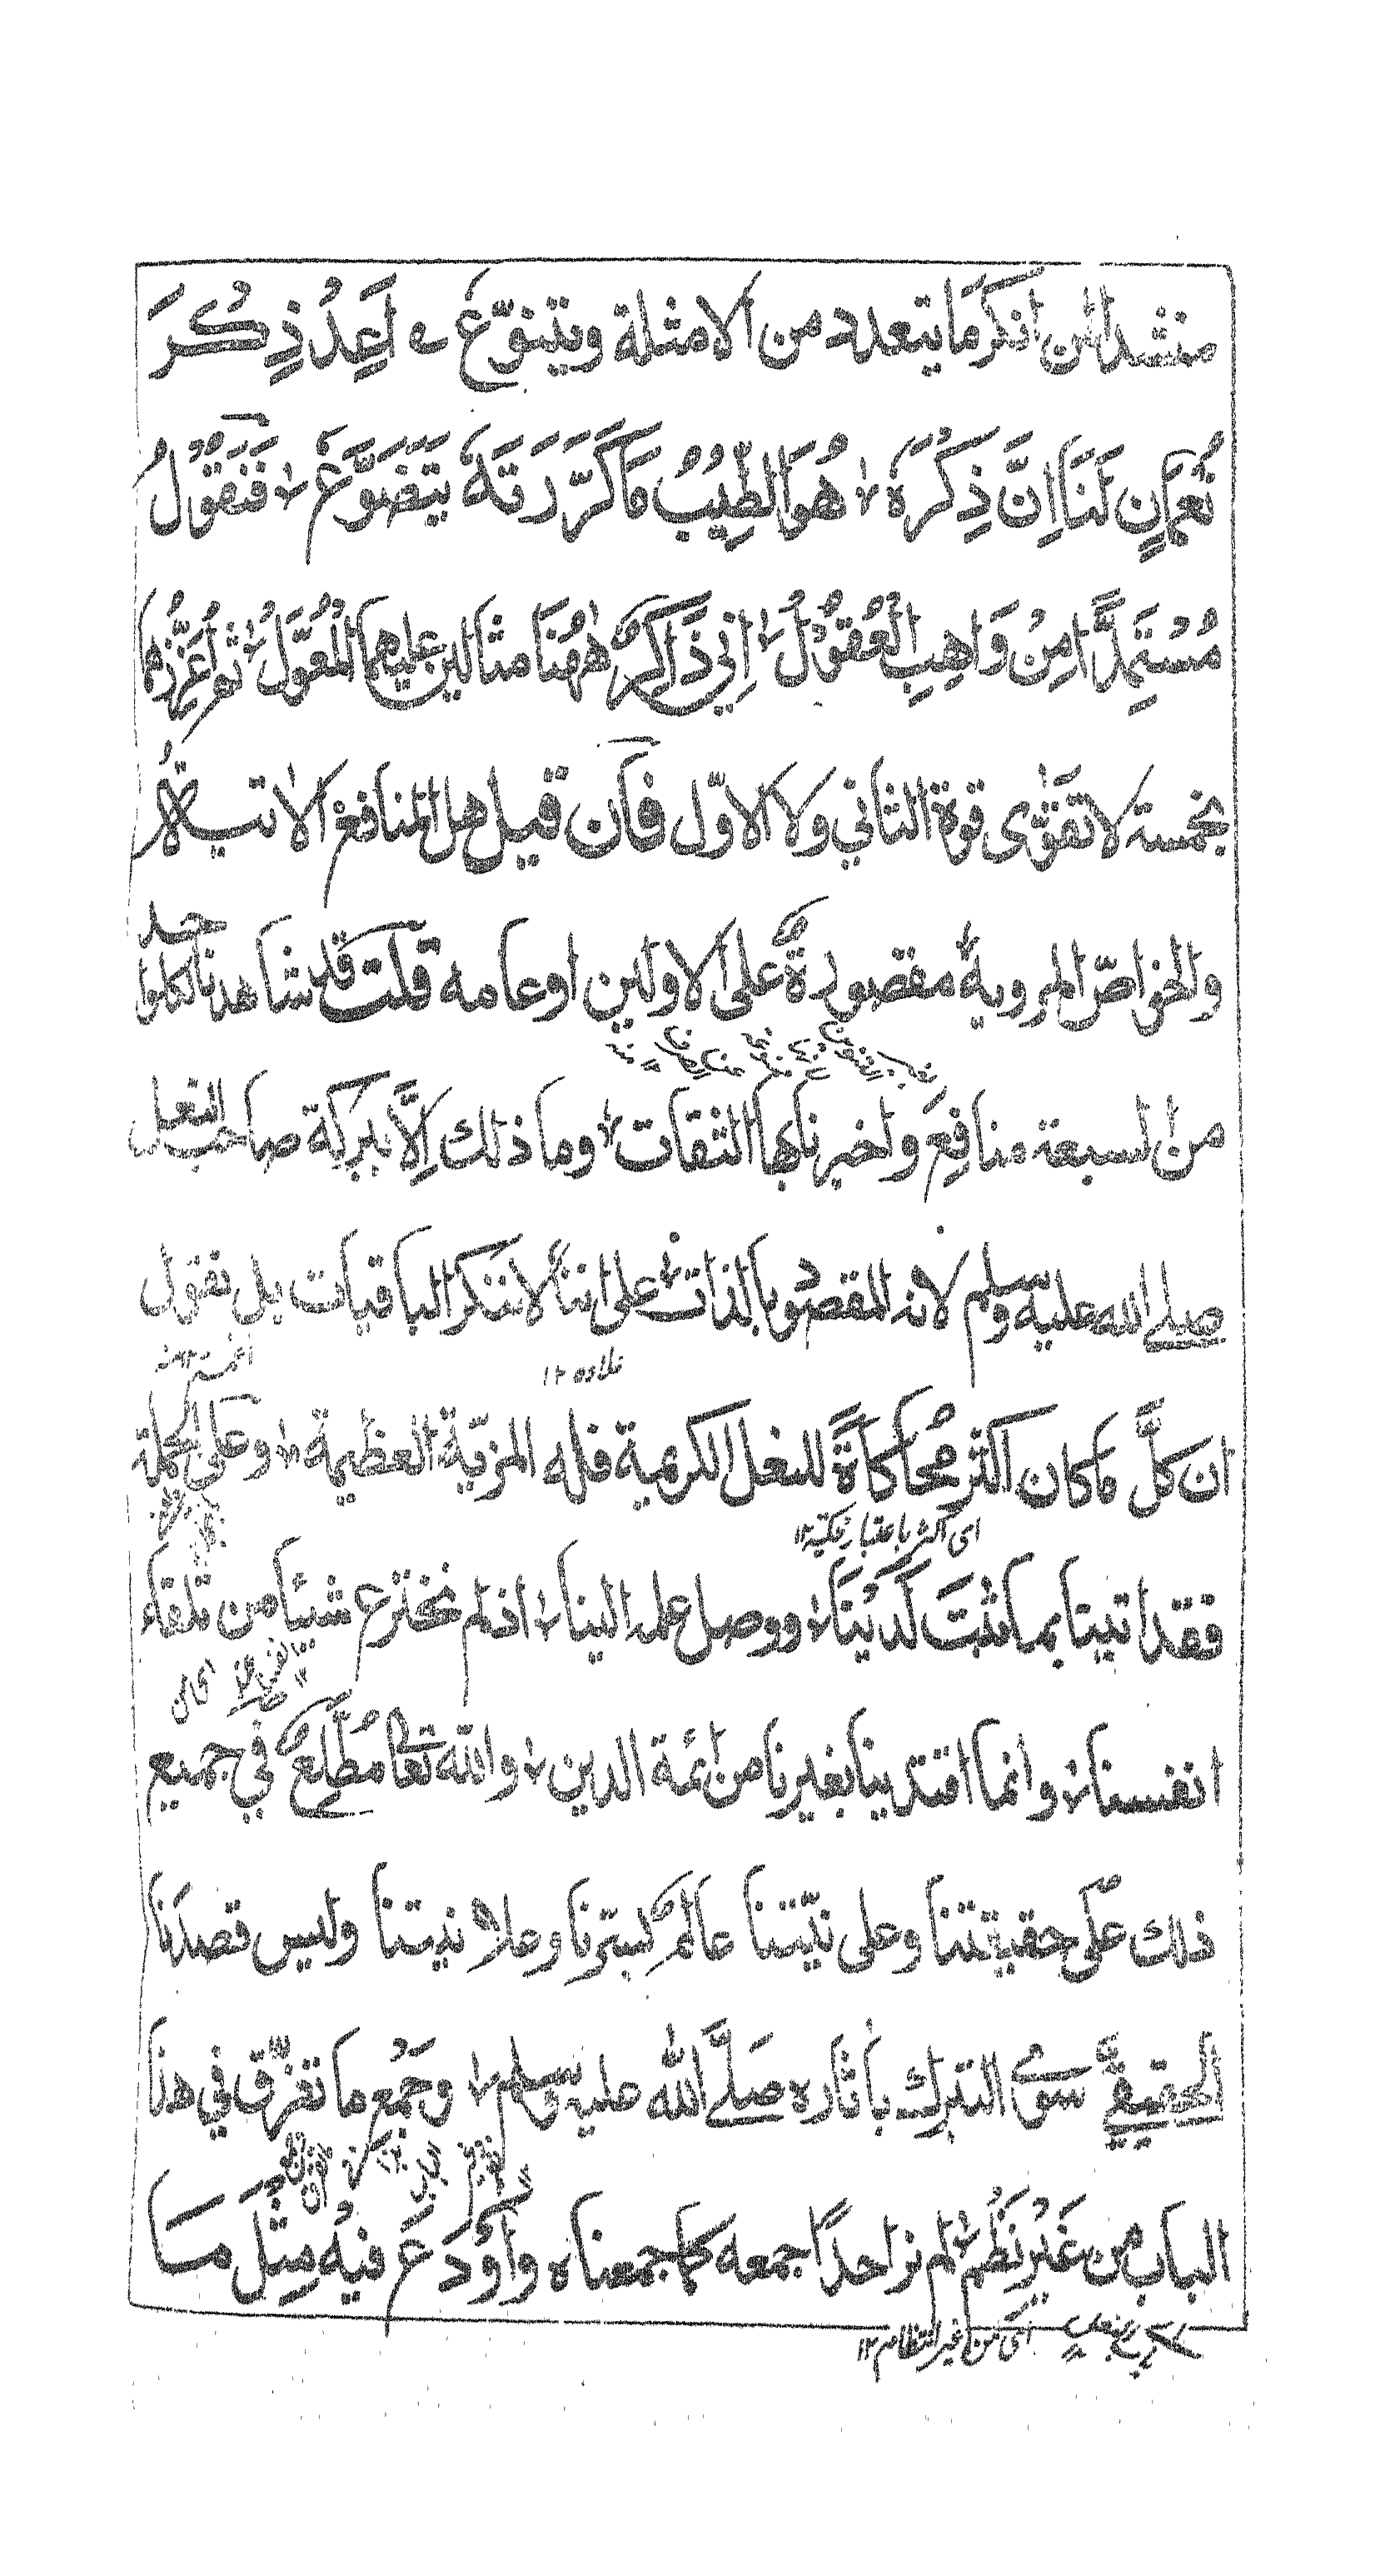 منشدا لمن انكر ما يتعدد من الامثلة ويتنوّع ؎ اَعِدْ ذِكْرَ
نُعْمَانٍ لَنَا اِنَّ ذِكْرَهٗ ؛ هُوَ الطِّيْبُ مَا كَرَّرْتَهٗ يَتَضَوَّعُ ؛ فَنَقُوْلُ
مُسْتَمِدًّا مِنْ وَاهِبِ الْعُقُوْلِ ؛ اِنِّي ذَاكِرٌ هٰهُنَا مثالين عليهما الْمُعَوَّلُ ؛ ثم اُعَزِّزُهما
بخمسة لا تقوٰى قوة الثاني ولا الاوّل فان قيل هل المنافع الاتية
والخواصّ المروية مقصورةٌ على الاولين او عامه قلت قد شاهدنا لكلواحد
من السبعة منافِعَ واخبرنا بها الثقات ؛ وما ذلك اِلَّا ببركة صاحب النعل
صلى الله عليه وسلم لانه المقصود بالذات ؛ على اننا لا ننكر الباقيات بل نقول
علاوه ١٢
ان كلَّ ما كان اكثر محاكاةً للنعل الكريمة فله المزيّة العظيمة ؛ وعلى الجملة
اى اكثر باعتبار
فقد اتينا بما ثبَتَ لَدَيْنَا ؛ ووصل علمه الينا ؛ اذ لم نخترع شيئا من تلقاء
اى من
انفسنا ؛ وانما اقتدينا بغيرنا من ائمة الدين ؛ والله تعالى مُطَّلِعٌ في جميع
ذلك على حقيقتنا وعلى نيّتنا عالمٌ بسرّنا وعلانيتنا وليس قصدنا
الحقيقيَّ سوى التبرك باٰثاره صَلَّى الله عليه وسلم ؛ وجَمْع ما تفرّق في هذا
الباب من غَيْرِ نَظْمٍ ؛ لم نر احدًا جمعه كما جمعناه واَوْدَعَ فيْهِ مِثْلَ مَا
اى من غير انتظام ١٢